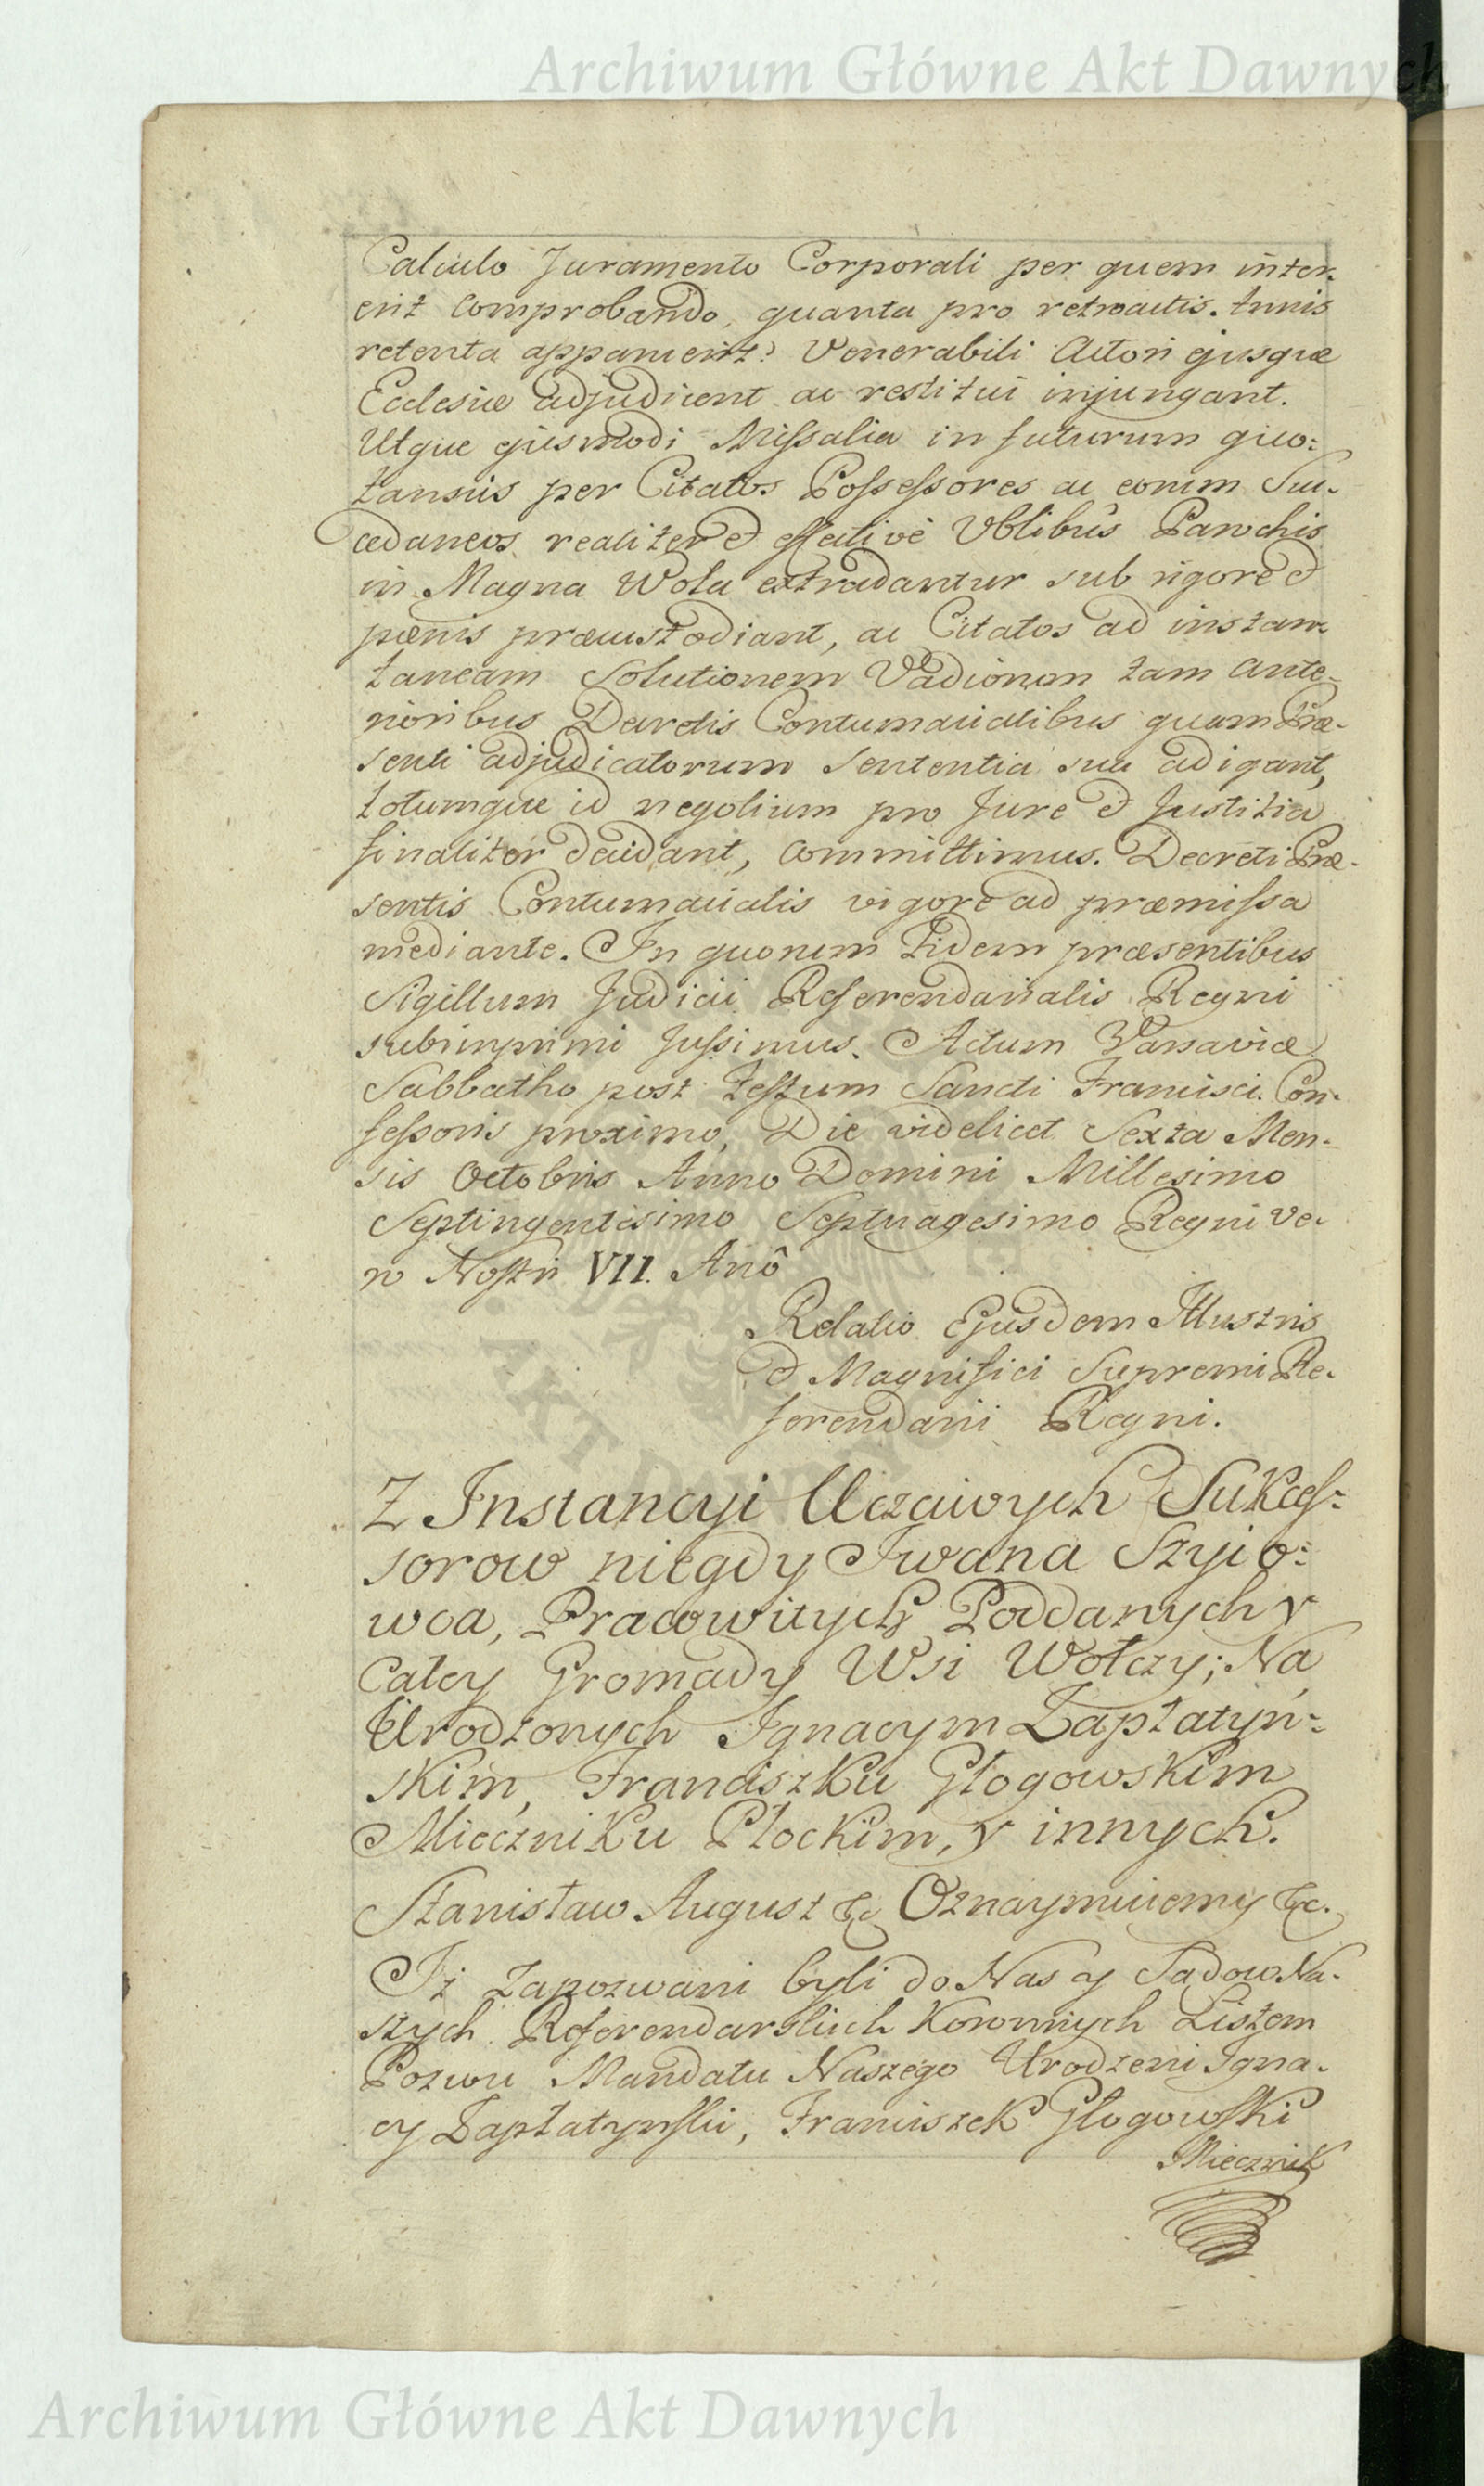 Archiwum Główne Akt Dawnych
Calculo Juramento Corporali per quem inter-
erit comprobando, quanta pro retroactis annis
retenta apparuerit? Venerabili Actori ejusque
Ecclesiæ adjudicent ac restitui injungant.
Utque ejusmodi Missalia in futurum quo=
tannis per Citatos Possessores ac eorum Suc-
cedaneos realiter & effective Vblibus Parochis
in Magna Wola extradantur sub rigore &
pœnis præcustodiant, ac Citatos ad instan-
taneam Solutionem Vadiorum tam ante-
rioribus Decretis Contumacialibus quam Præ-
senti adjudicatorum sententia sua adigant,
totumque id negotium pro Jure & Justitia
finaliter decidant, committimus. Decreti Præ-
sentis Contumacialis vigore ad præmissa
mediante. In quorum Fidem præsentibus
Sigillum Judicii Referendarialis Regni
subimprimi Jussimus. Actum Varsaviæ
Sabbatho post Festum Sancti Francisci Con-
fessoris proximo, Die videlicet Sexta Men-
sis Octobris Anno Domini Millesimo
Septingentesimo Septuagesimo Regni ve-
ro Nostri VII. Anô
Relatio Ejusdem Illustris
& Magnifici Supremi Re-
ferendarii Regni.
Z Instancyi Uczciwych Sukces=
sorow niegdy Iwana Szyio=
wca, Pracowitych Poddanych y
całey Gromady Wsi Wołczy; Na
Urodzonych Ignacym Zapłatyń=
skim, Franciszku Głogowskim
Mieczniku Płockim, y innych.
Stanisław August &c Oznaymuiemy &c.
Iż zapozwani byli do Nas y Sądow Na-
szych Referendarskich Koronnych Listem
Pozwu Mandatu Naszego Urodzeni Igna-
cy Zapłatynski, Franciszek Głogowski
Miecznik
Archiwum Główne Akt Dawnych